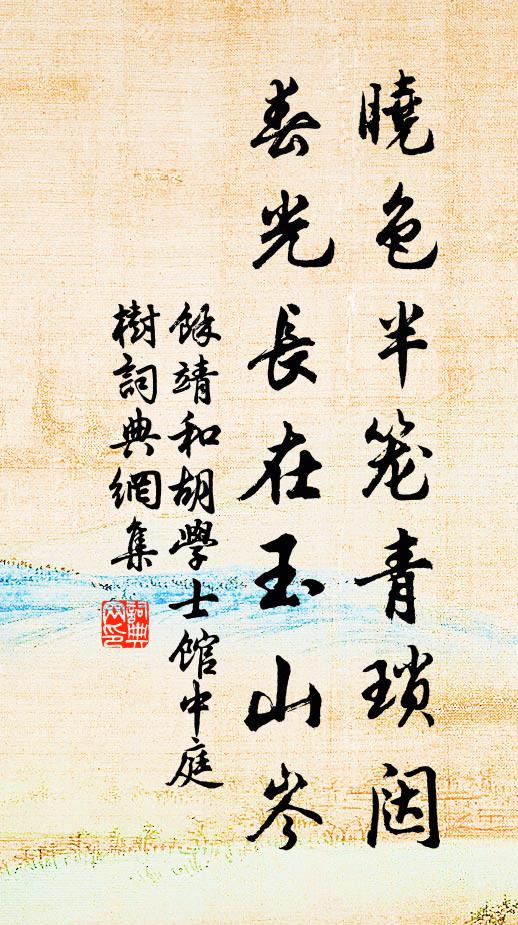 曉色半笼青瑣闼
春光長在玉山岑
餘靖和胡學士館中庭
樹詞典網集
詞典